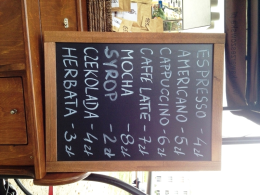 ESPRESSO - 4zł
AMERICANO 5zł
CAPPUCCINO - 6zł
CAFFE LATTE - 7zł
MOCHA - 8zł
SYROP - 2zł
CZEKOLADA - 4zł
HERBATA - 3zł